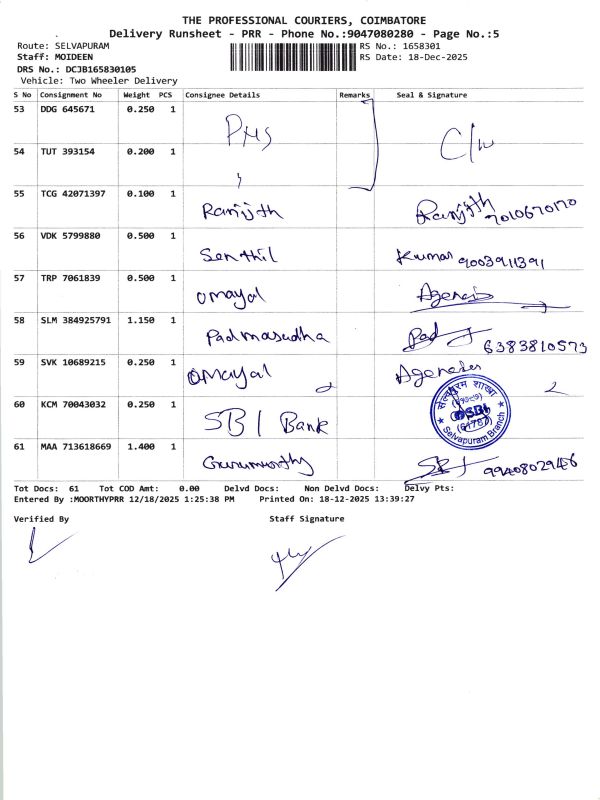 THE PROFESSIONAL COURIERS, COIMBATORE
Delivery Runsheet - PRR - Phone No.:9047080280 - Page No.:5
Route: SELVAPURAM
RS No.: 1658301
Staff: MOIDEEN
RS Date: 18-Dec-2025
DRS No.: DCJB165830105
Vehicle: Two Wheeler Delivery
S No Consignment No Weight PCS Consignee Details Remarks Seal & Signature
53 DDG 645671 0.250 1
54 TUT 393154 0.200 1
55 TCG 42071397 0.100 1 Ranjith Ranjith 7010670170
56 VDK 5799880 0.500 1 Senthil Kumar 9003911391
57 TRP 7061839 0.500 1 Omayal Agencis
58 SLM 384925791 1.150 1 Padmasudha Pad 6383810573
59 SVK 10689215 0.250 1 Omayal Agencies
60 KCM 70043032 0.250 1 SBI Bank
SBI
Selvapuram Branch
61 MAA 713618669 1.400 1 Gurumorthy 9940802946
Tot Docs: 61 Tot COD Amt: 0.00 Delvd Docs: Non Delvd Docs: Delvy Pts:
Entered By :MOORTHYPRR 12/18/2025 1:25:38 PM Printed On: 18-12-2025 13:39:27
Verified By Staff Signature